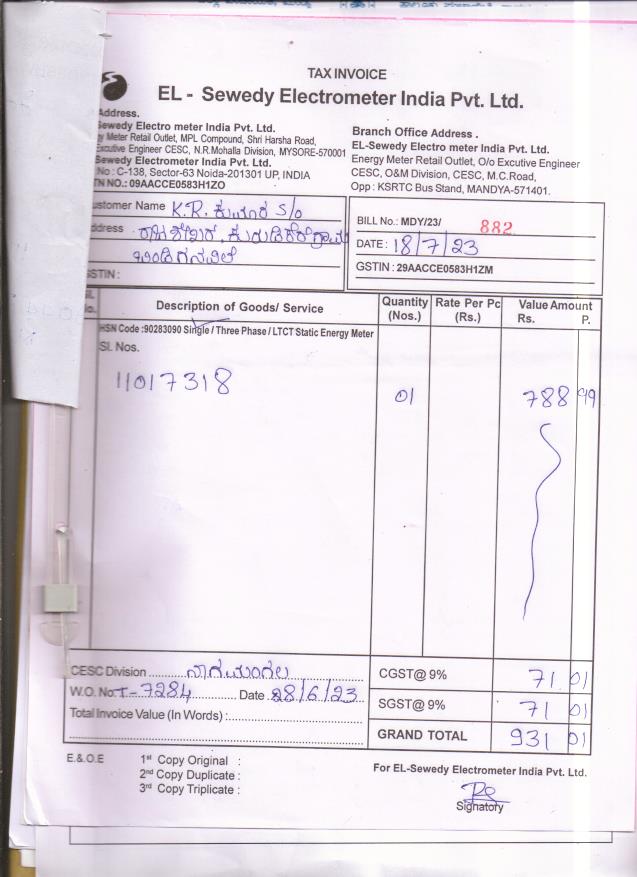 TAX INVOICE
EL - Sewedy Electrometer India Pvt. Ltd.
Address.
Sewedy Electro meter India Pvt. Ltd.
Meter Retail Outlet, MPL Compound, Shri Harsha Road,
Excutive Engineer CESC, N.R.Mohalla Division, MYSORE-570001
Sewedy Electrometer India Pvt. Ltd.
No : C-138, Sector-63 Noida-201301 UP, INDIA
TN NO.: 09AACCE0583H1ZO
Branch Office Address .
EL-Sewedy Electro meter India Pvt. Ltd.
Energy Meter Retail Outlet, O/o Excutive Engineer
CESC, O&M Division, CESC, M.C.Road,
Opp : KSRTC Bus Stand, MANDYA-571401.
ustomer Name K.R. ಕುಮಾರ S/o
ddress
GSTIN :
BILL No.: MDY/23/ 882
DATE : 18/7/23
GSTIN : 29AACCE0583H1ZM
SL. No. Description of Goods/ Service Quantity (Nos.) Rate Per Pc (Rs.) Value Amount Rs. P.
HSN Code :90283090 Single / Three Phase / LTCT Static Energy Meter
Sl. Nos.
11017318 01 788 99
CESC Division ನಾಗಮಂಗಲ
W.O. No. T-7284 Date 28/6/23
Total Invoice Value (In Words) :
CGST@ 9% 71 01
SGST@ 9% 71 01
GRAND TOTAL 931 01
E.& O.E
1st Copy Original :
2nd Copy Duplicate :
3rd Copy Triplicate :
For EL-Sewedy Electrometer India Pvt. Ltd.
Signatory